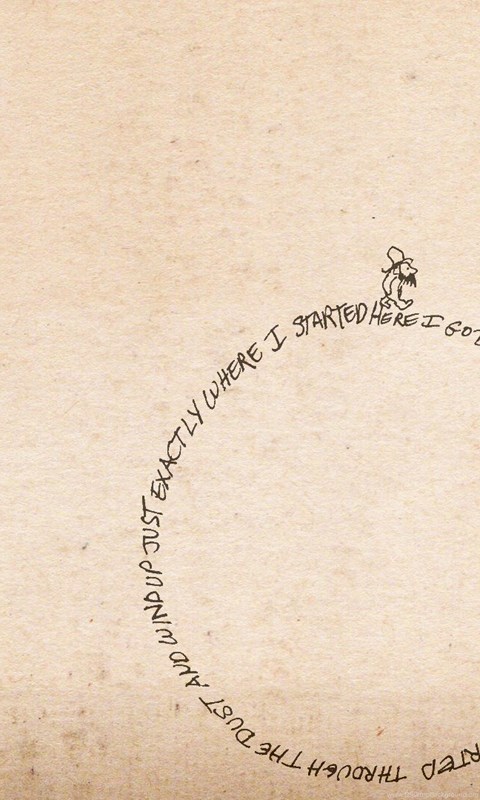 HERE I GO
RTED THROUGH THE DUST AND WIND UP JUST EXACTLY WHERE I STARTED